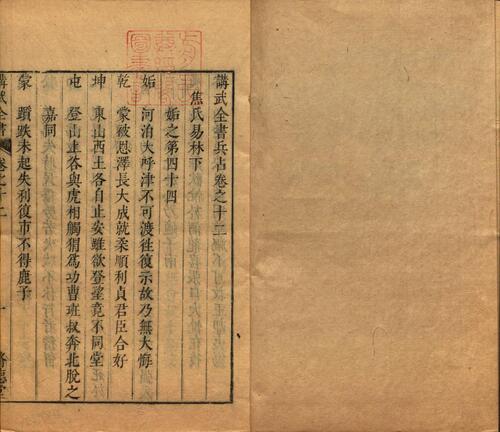 講武全書兵占卷之十二
焦氏易林下
姤之第四十四
姤　河泊大呼津不可渡徃復示故乃無大悔
乾　蒙被恩澤長大成就柔順利貞君臣合好
坤　東山西土各自止安雖欲登望竟不同堂
屯　登山上谷與虎相觸猬爲功曹班叔奔北脫之
嘉同
蒙　躓跌未起失利後市不得鹿子
講武全書
卷之十二
一